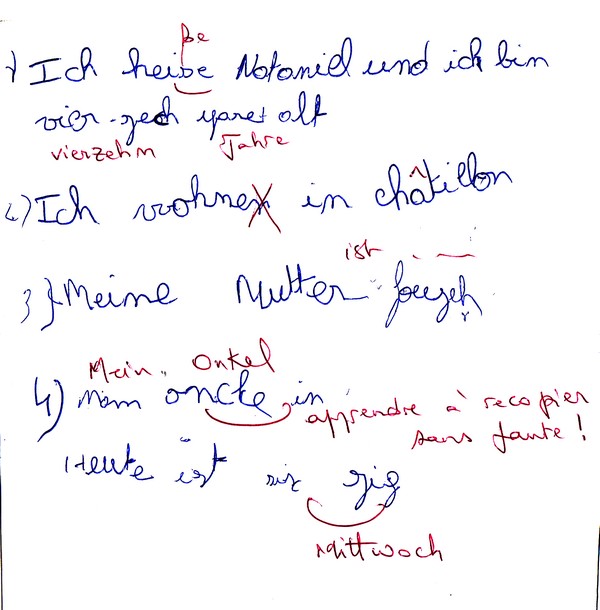 ße
1) Ich heibe Notaniel und ich bin
vier-zech yaret alt
vierzehm Jahre
2.) Ich wohnen in châtillon
ist
3) Meine Mutter
Mein Onkel
4) Mom oncke in
apprendre à recopier
sans faute !
Heute ist six zig
Mittwoch